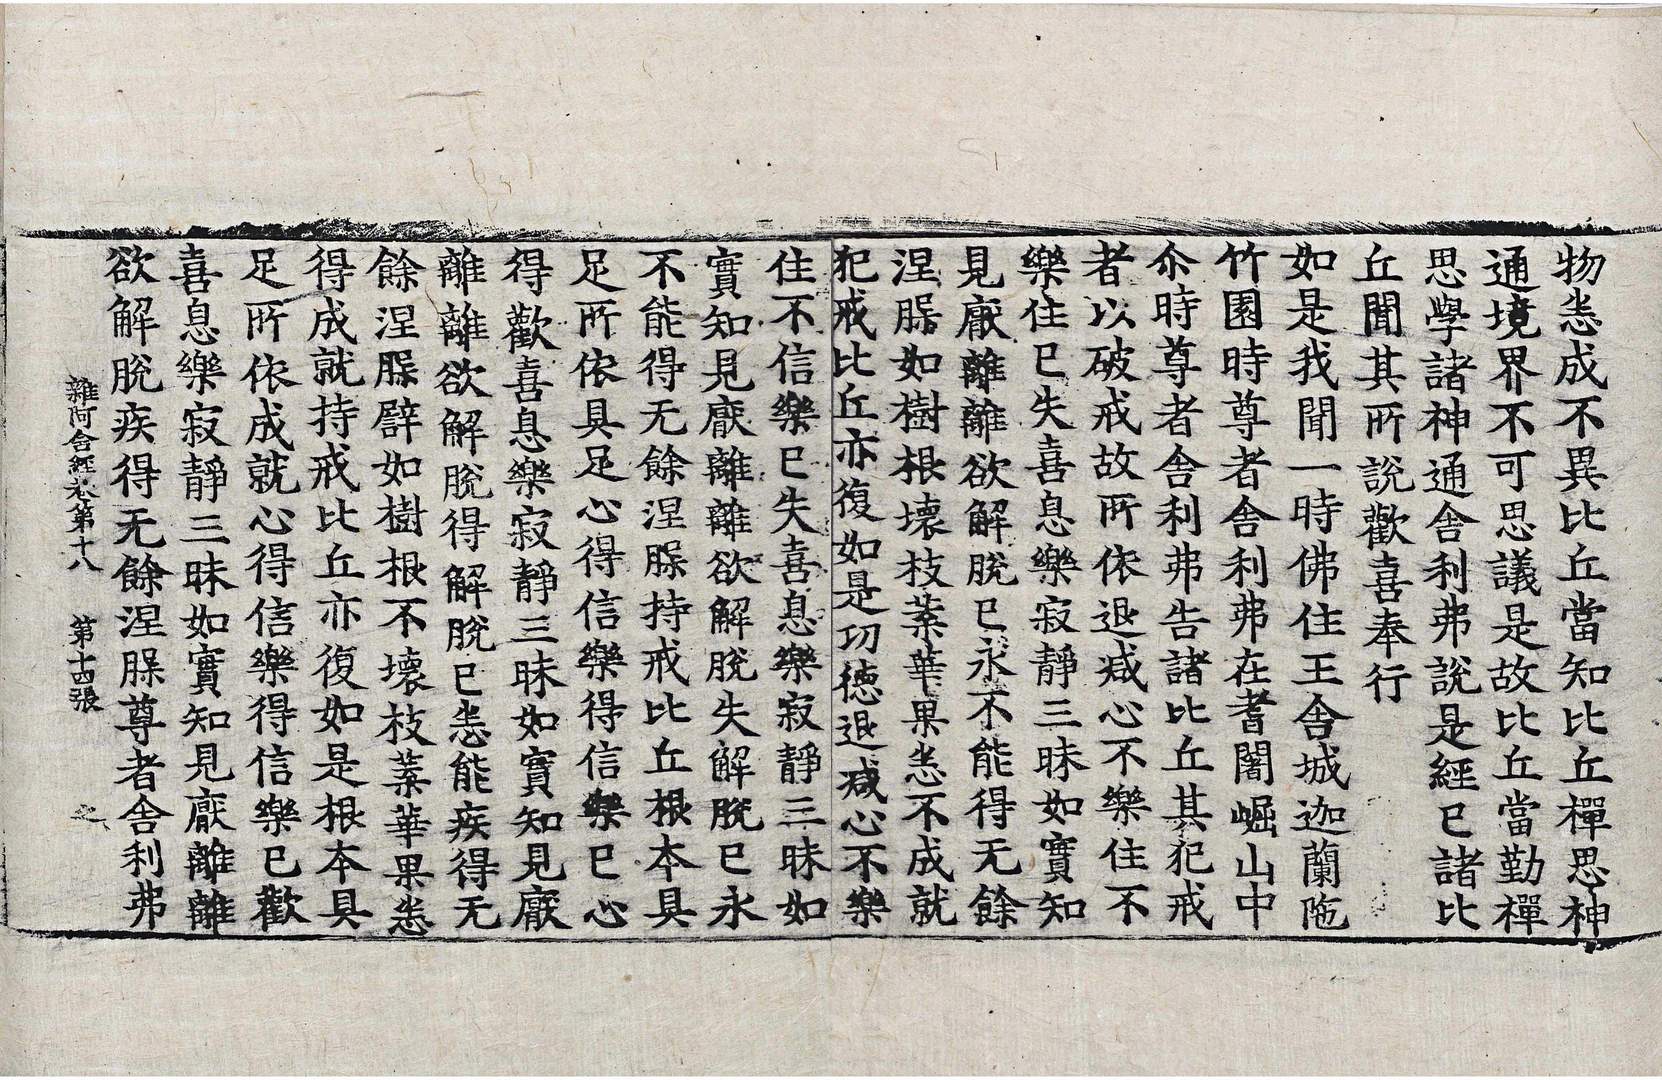 物悉成不異比丘當知比丘禪思神
通境界不可思議是故比丘當勤禪
思學諸神通舍利弗說是經已諸比
丘聞其所說歡喜奉行
如是我聞一時佛住王舍城迦蘭陁
竹園時尊者舍利弗在耆闍崛山中
尒時尊者舍利弗告諸比丘其犯戒
者以破戒故所依退减心不樂住不
樂住已失喜息樂寂靜三昧如實知
見厭離離欲解脫已永不能得无餘
涅槃如樹根壞枝葉華果悉不成就
犯戒比丘亦復如是功德退减心不樂
住不信樂已失喜息樂寂靜三昧如
實知見厭離離欲解脫失解脫已永
不能得无餘涅槃持戒比丘根本具
足所依具足心得信樂得信樂已心
得歡喜息樂寂靜三昧如實知見厭
離離欲解脫得解脫已悉能疾得无
餘涅槃譬如樹根不壞枝葉華果悉
得成就持戒比丘亦復如是根本具
足所依成就心得信樂得信樂已歡
喜息樂寂靜三昧如實知見厭離離
欲解脫疾得无餘涅槃尊者舍利弗
雜阿含經卷第十八 第十四張